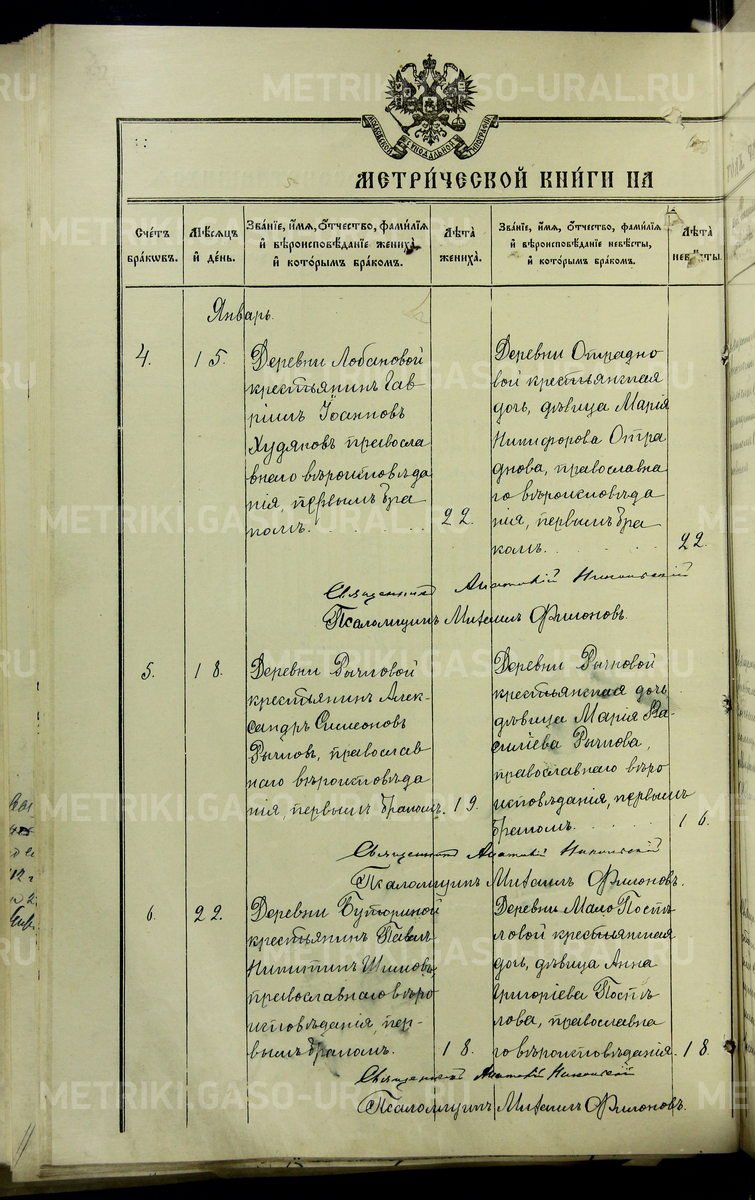 МЕТРИ́ЧЕСКОЙ КНИ́ГИ НА
Сче́тъ бра́кωвъ.
Мѣ́сяцъ и҆ де́нь.
Зва́нїе, и҆́мя, ѻ҆́тчество, фами́лїя и҆ вѣроисповѣ́данїе жениха̀, и҆ кото́рымъ бра́комъ.
Лѣ́та жениха̀.
Зва́нїе, и҆́мя, ѻ҆́тчество, фами́лїя и҆ вѣроисповѣ́данїе невѣ́сты, и҆ кото́рымъ бра́комъ.
Лѣ́та невѣ́сты.
Январь.
4.
15.
Деревни Лобановой
крестьянинъ Гав-
рiилъ Iоанновъ
Худяковъ правосла
внаго вѣроисповѣда
нiя, первымъ бра
комъ.
22.
Деревни Отрадно
вой крестьянская
дочь, дѣвица Марiя
Никифорова Отра
днова, православна
го вѣроисповѣда
нiя, первымъ бра
комъ.
22.
Священникъ Анатолiй
Псаломщикъ Михаилъ Филоновъ.
5.
18.
Деревни Рычковой
крестьянинъ Алек-
сандръ Симеоновъ
Рычковъ, православ
наго вѣроисповѣда
нiя, первымъ бракомъ.
19.
Деревни Рычковой
крестьянская дочь,
дѣвица Марiя Ва-
силiева Рычкова,
православнаго вѣро
исповѣданiя, первымъ
бракомъ.
16.
Священникъ Анатолiй
Псаломщикъ Михаилъ Филоновъ.
6.
22.
Деревни Бутыриной
крестьянинъ Павелъ
Никитинъ
православнаго вѣро
исповѣданiя, пер-
вымъ бракомъ.
18.
Деревни Мало Постѣ
ловой крестьянская
дочь, дѣвица Анна
Григорiева Постѣ
лова, православна
го вѣроисповѣданiя.
18.
Священникъ Анатолiй
Псаломщикъ Михаилъ Филоновъ.
METRIKI.GASO-URAL.RU